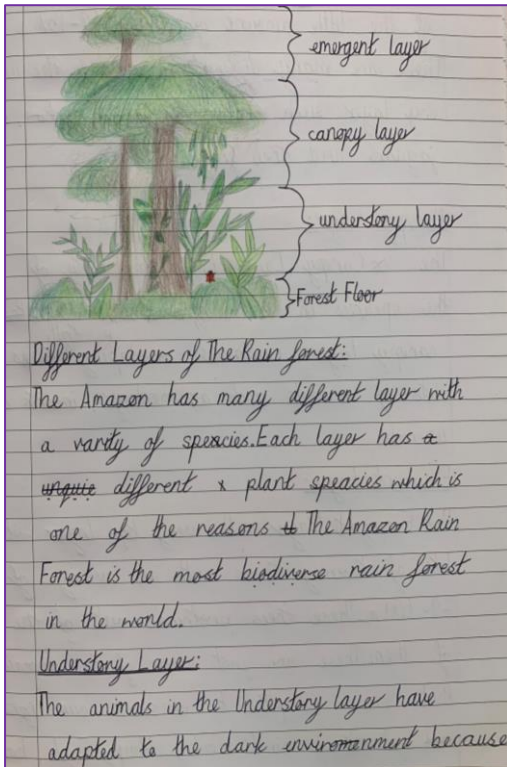 emergent layer
canopy layer
understory layer
Forest Floor
Different Layers of The Rain forest:
The Amazon has many different layer with
a varity of speacies. Each layer has a
unquie different x plant speacies which is
one of the reasons th The Amazon Rain
Forest is the most biodiverse rain forest
in the world.
Understory Layer:
The animals in the Understory layer have
adapted to the dark enviromenment because